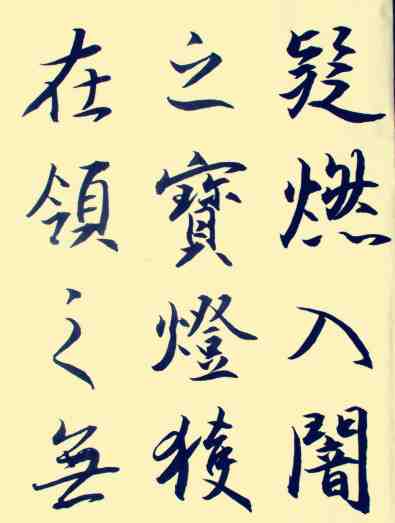 疑燃入闇
之寶燈獲
在領之無